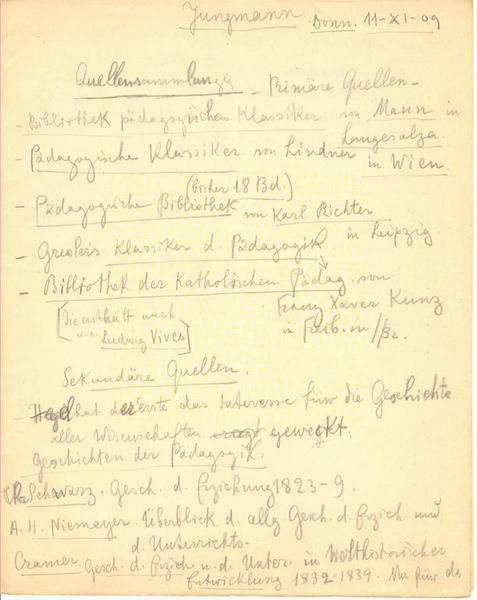 Jungmann Donn. 11-XI-09
Quellensammlung - Primäre Quellen -
- Bibliothek pädagogischen Klassiker von Mann in
Langesalza.
- Pädagogische Klassiker von Lindner in Wien
(bisher 18 Bd.)
- Pädagogische Bibliothek von Karl Richter
in Leipzig
- Greßlers Klassiker d. Pädagogik
- Bibliothek der Katholischen Pädag. von
Franz Xaver Kunz
in Freib. in /Br.
[die enthält auch
u. a. Ludwig Vives]
Sekundäre Quellen.
- Hegel hat der erste das Interesse für die Geschichte
aller Wisenschaften geweckt.
Geschichten der Pädagogik.
Schwarz. Gesch. d. Erziehung 1823-9.
A. H. Niemeyer. Überblick d. allg Gesch. d. Erzieh. und
d. Unterrichts-
Cramer. Gesch. d. Erzieh. u. d. Unter. in Welthistorischer
Entwicklung 1832-1839. Nur für das